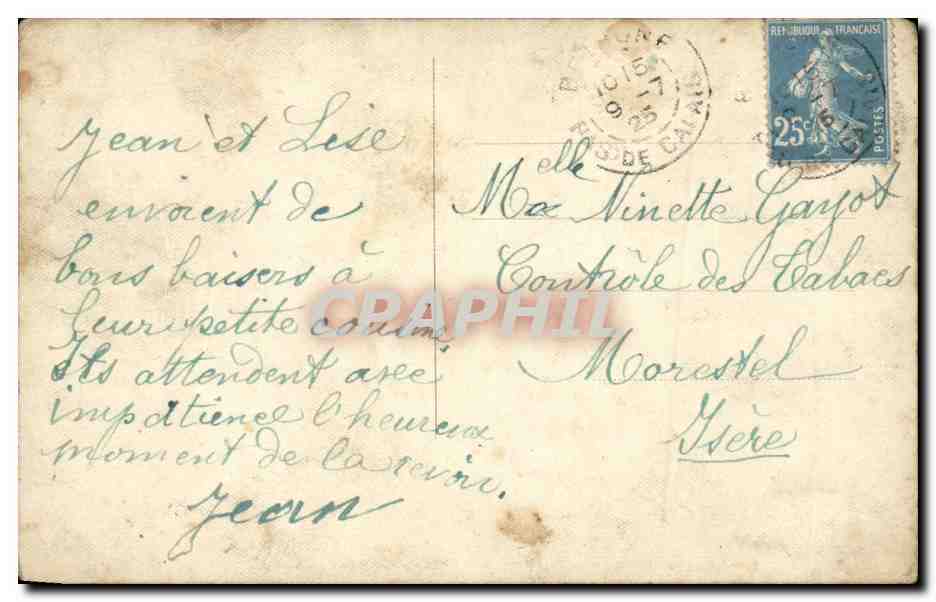 Jean et Lise
envoient de
bons baisers à
leur petite cousine,
Ils attendent avec
impatience l'heureux
moment de la revoir.
Jean
REPUBLIQUE FRANÇAISE
25c
POSTES
10 15
7
9 25
PAS DE CALAIS
Melle Ninette Gayot
Contrôle des Tabacs
Morestel
Isère
CPAPHIL